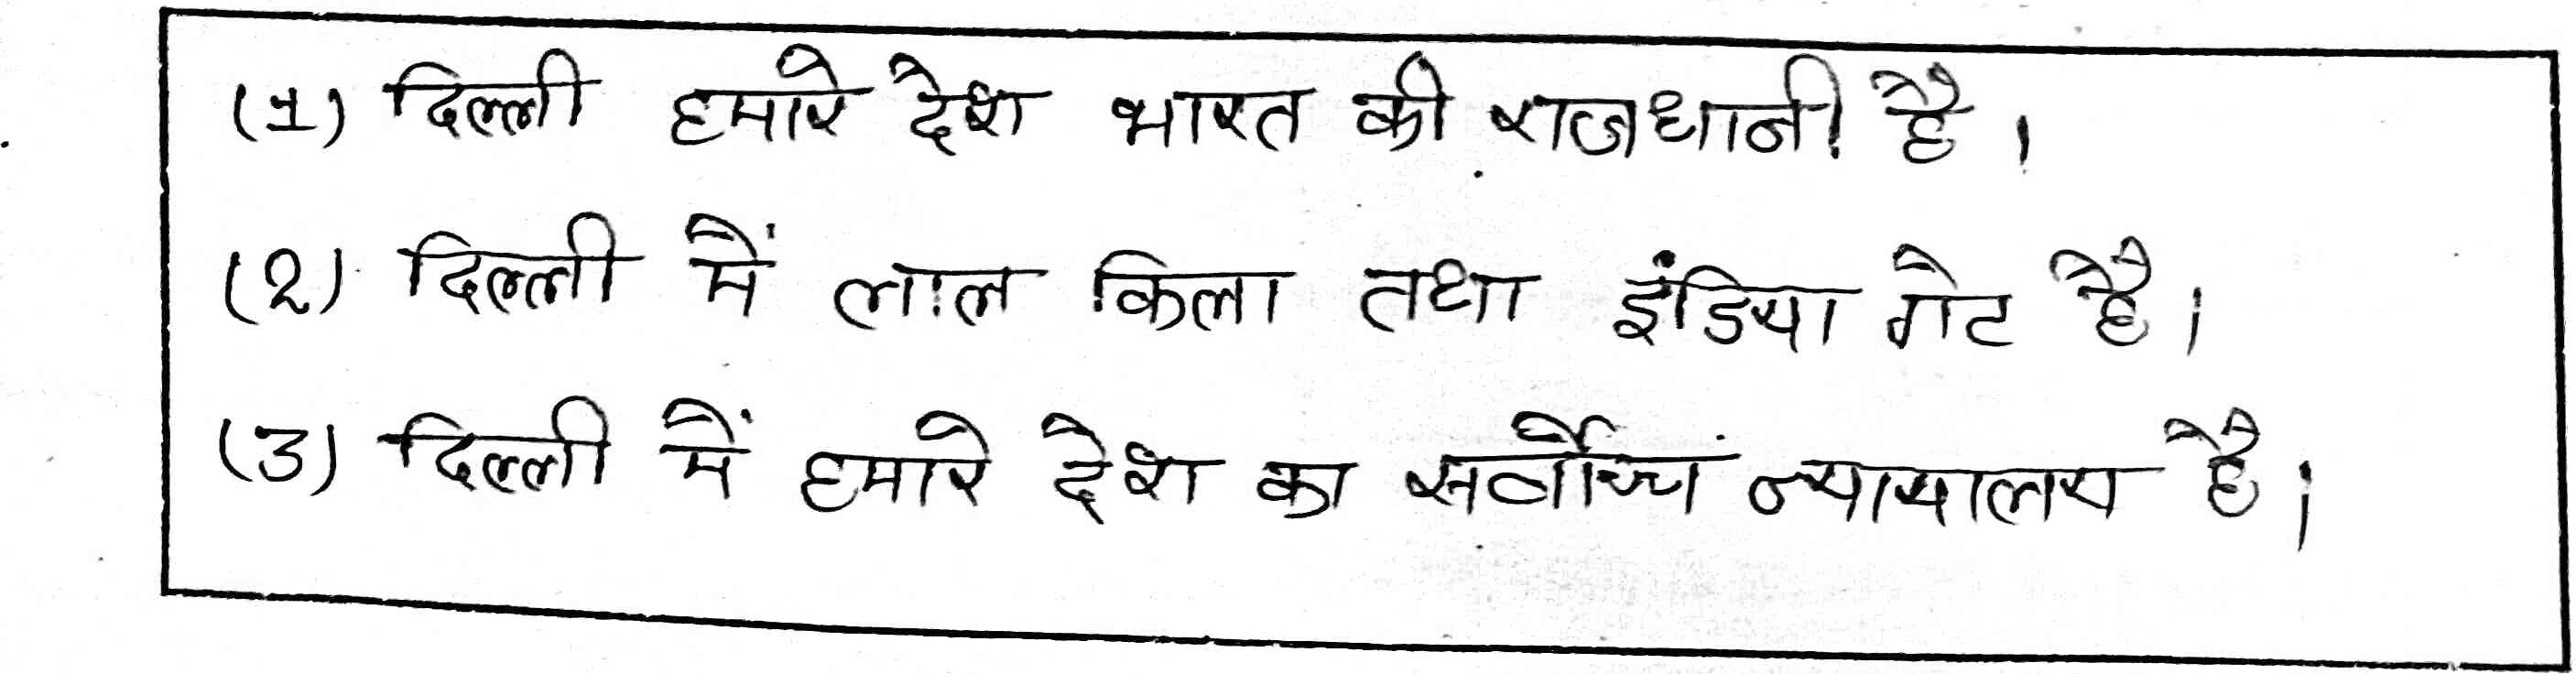 (1) दिल्ली हमारे देश भारत की राजधानी है।
(2) दिल्ली में लाल किला तथा इंडिया गेट है।
(3) दिल्ली में हमारे देश का सर्वोच्च न्यायालय है।